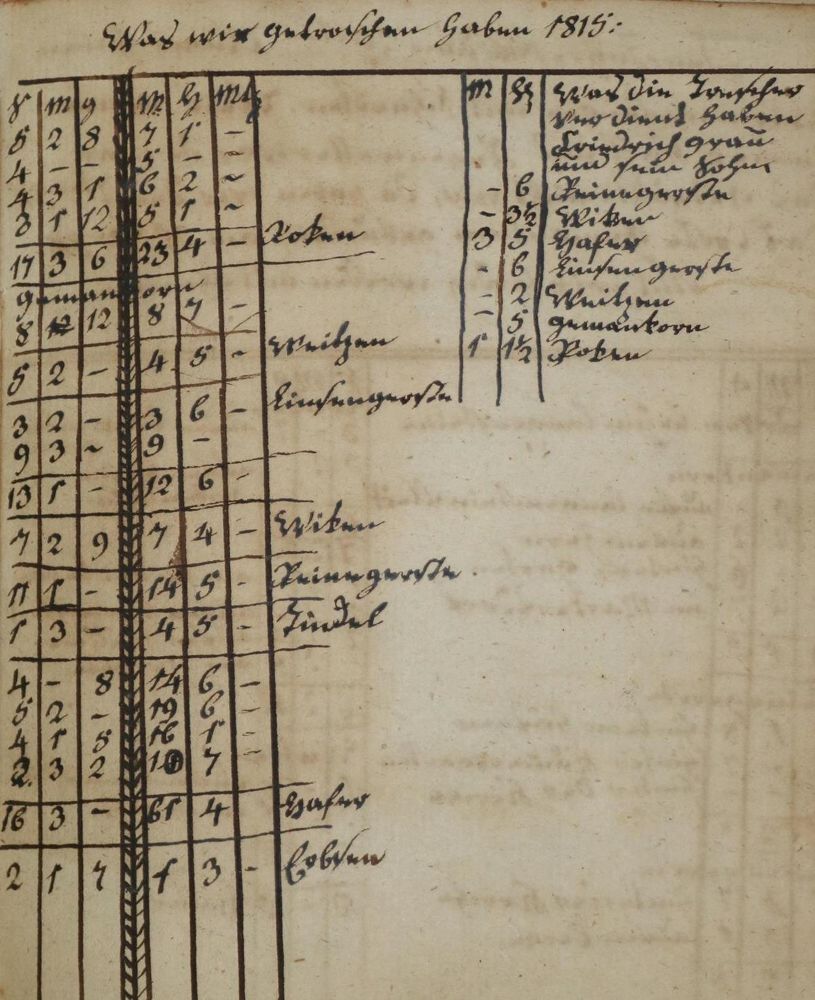 Was wir getroschen haben 1815:
8 M g M H Mtz
5 2 8 7 1 –
4 – – 5 – –
4 3 1 6 2 ~
3 1 12 5 1 ~
17 3 6 23 4 – Roken
gemankorn
8 12 8 7 –
5 2 – 4 5 – Weitzen
3 2 – 3 6 – Linsengerste
9 3 ~ 9 –
13 1 – 12 6 –
7 2 9 7 4 – Wiken
11 1 – 14 5 – Reinegerste
1 3 – 4 5 – Tindel
4 – 8 14 6 –
5 2 – 19 6 –
4 1 5 16 1 –
2 3 2 7 –
16 3 – 61 4 Hafer
2 1 7 1 3 – Erbsen
M H Was die Trescher
verdient haben
Friedrich Grau
und sein Sohn
– 6 Reinegerste
– 3½ Wiken
3 5 Hafer
– 6 Linsengerste
– 2 Weitzen
– 5 gemankorn
1 1½ Roken